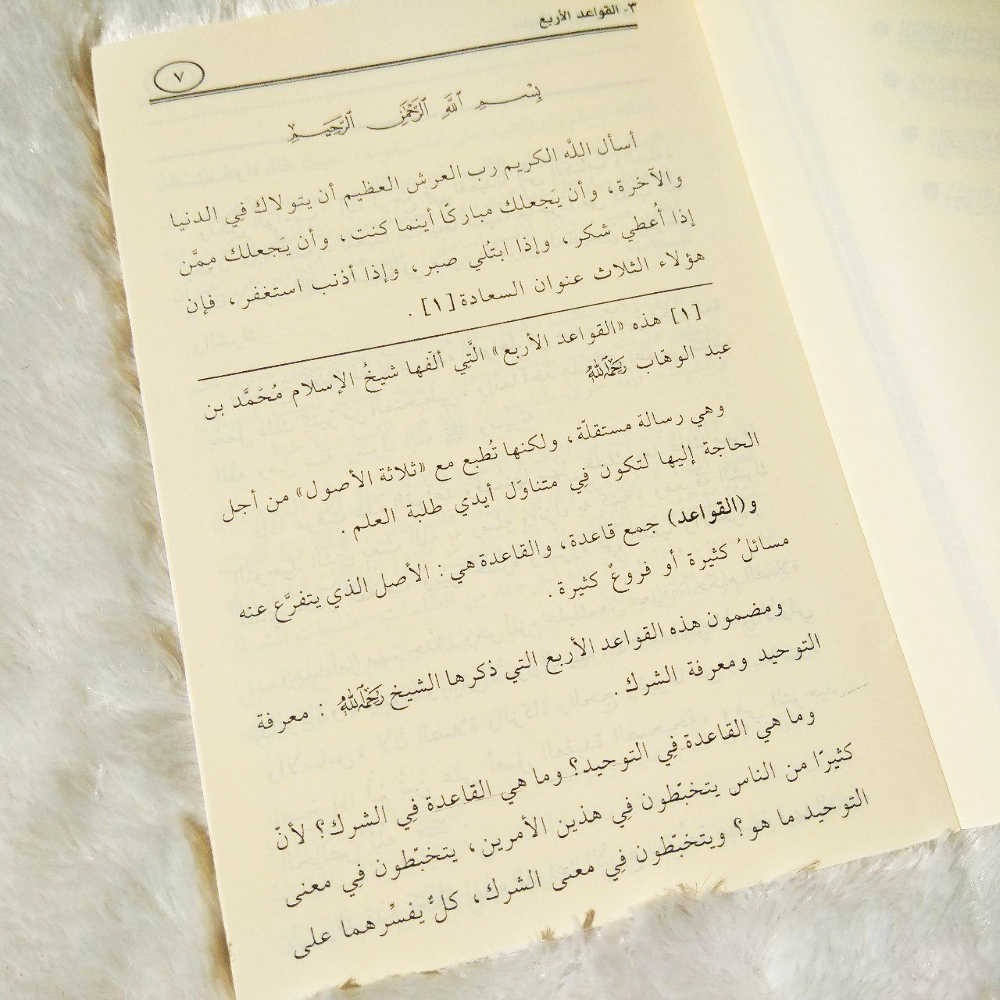 ٣- القواعد الأربع
٧
بسم الله الرحمن الرحيم
أسأل الله الكريم رب العرش العظيم أن يتولاك فِي الدنيا
والآخرة، وأن يَجعلك مباركًا أينما كنت، وأن يَجعلك مِمَّن
إذا أُعطي شكر، وإذا ابتُلي صبر، وإذا أذنب استغفر، فإن
هؤلاء الثلاث عنوان السعادة[١].
[١] هذه «القواعد الأربع» الَّتِي ألَّفها شيخُ الإسلام مُحَمَّد بن
عبد الوهّاب رَحِمَهُ ٱللَّهُ
وهي رسالة مستقلّة، ولكنها تُطبع مع «ثلاثة الأصول» من أجل
الحاجة إليها لتكون فِي متناوَل أيدي طلبة العلم.
و(القواعد) جمع قاعدة، والقاعدة هي: الأصل الذي يتفرَّع عنه
مسائلُ كثيرة أو فروعٌ كثيرة.
ومضمون هذه القواعد الأربع التي ذكرها الشيخ رَحِمَهُ ٱللَّهُ: معرفة
التوحيد ومعرفة الشرك.
وما هي القاعدة فِي التوحيد؟ وما هي القاعدة فِي الشرك؟ لأنّ
كثيرًا من الناس يتخبّطون فِي هذين الأمرين، يتخبّطون فِي معنى
التوحيد ما هو؟ ويتخبّطون فِي معنى الشرك، كلٌّ يفسِّرهما على